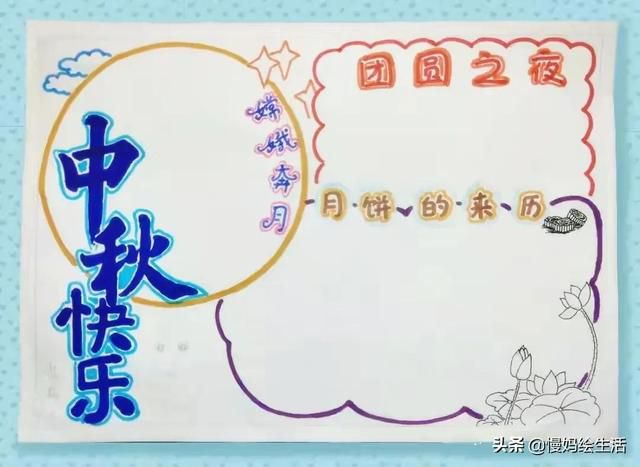 中秋
快乐
嫦娥奔月
团圆之夜
月饼的来历
头条@慢妈绘生活